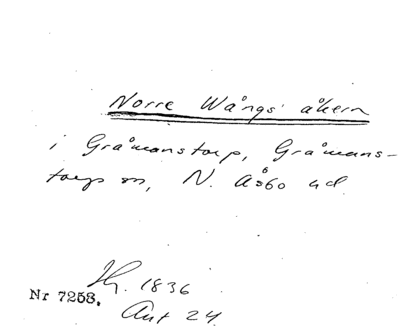 Norre Wångs åkern
i Gråmanstorp, Gråmans-
torps sn, N. Åsbo hd.
Hf. 1836
Nr 7258.
Ant 24